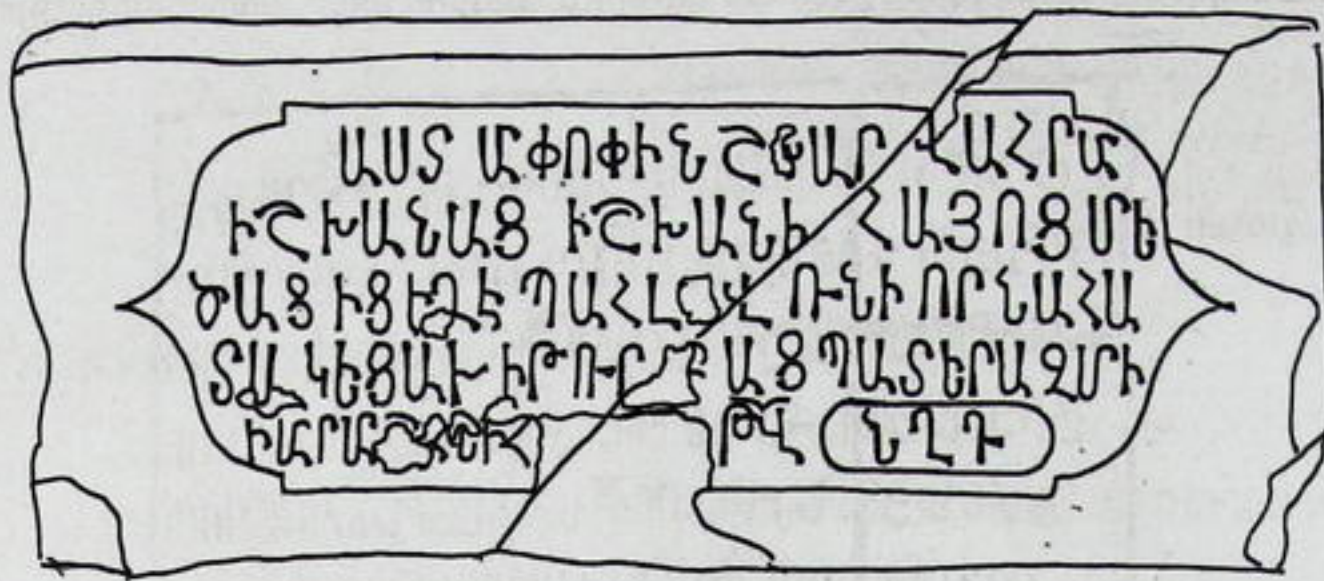 ԱՍՏ ԱՄՓՈՓԻ ՆՇԽԱՐ ՎԱՀՐԱՄ
ԻՇԽԱՆԱՑ ԻՇԽԱՆԻ ՀԱՅՈՑ ՄԵ
ԾԱՑ ԻՑԵՂԷ ՊԱՀԼԱՎՈՒՆԻ ՈՐ ՆԱՀԱ
ՏԱԿԵՑԱՒ Ի ԹՈՒՐՔԱՑ ՊԱՏԵՐԱԶՄԻ
ԹՎ ՆՂԴ